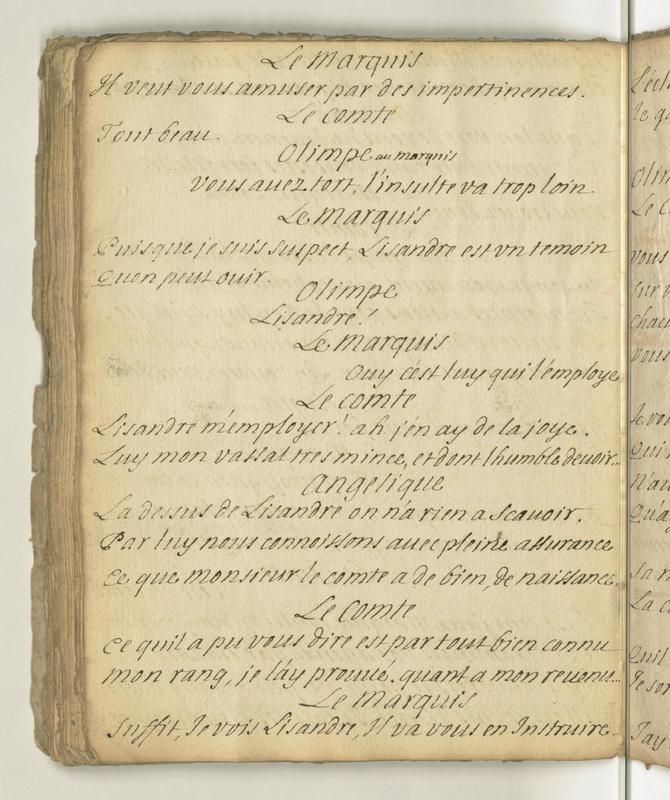 Le Marquis
Il veut vous amuser par des impertinences.
Le comte
Tout beau.
Olimpe au marquis
vous auez tort, l'insulte va trop loin.
Le Marquis
Puisque je suis suspect, Lisandre est vn temoin
Quon peut ouir.
Olimpe
Lisandre!
Le Marquis
Ouy c'est luy qui l'employe
Le comte
Lisandre m'employer! ah j'en ay de la joye.
Luy mon vassal tres mince, et dont l'humble deuoir...
Angelique
La dessus de Lisandre on n'a rien a scauoir.
Par luy nous connoissons auec pleine assurance
ce que monsieur le comte a de bien, de naissance.
Le Comte
ce quil a pu vous dire est par tout bien connu
mon rang, je l'ay prouué. quant a mon reuenu...
Le Marquis
Suffit, Je vois Lisandre, Il va vous en Instruire.
Le C
vous
sur
chac
vous
Je voi
Qui
n'au
Qu'a
sa r
La c
Quil
Je sor
J'ay